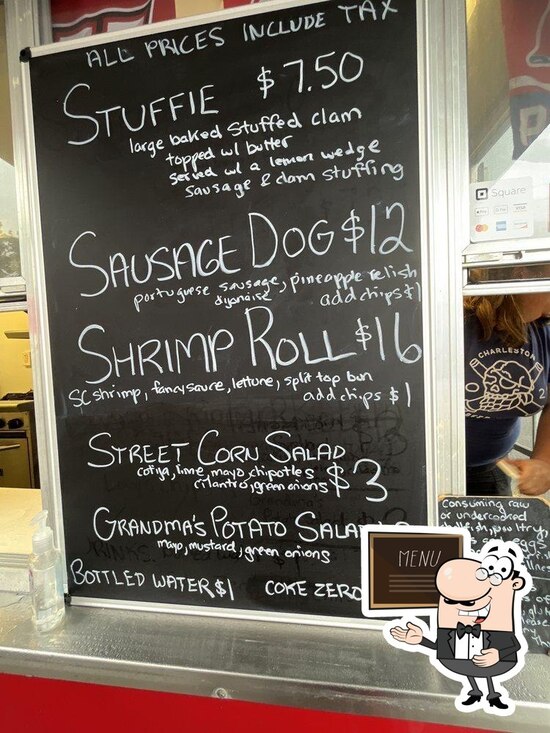 ALL PRICES INCLUDE TAX
STUFFIE $7.50
large baked stuffed clam
topped w/ butter
served w/ a lemon wedge
sausage & clam stuffing
SAUSAGE DOG $12
portuguese sausage, pineapple relish
dijonaise add chips $1
SHRIMP ROLL $16
SC shrimp, fancy sauce, lettuce, split top bun
add chips $1
STREET CORN SALAD $3
cotija, lime, mayo, chipotles
cilantro, green onions
GRANDMA'S POTATO
mayo, mustard, green onions
BOTTLED WATER $1 COKE ZERO
Square
Pay
VISA
CHARLESTON
2
Consuming raw
or undercooked
poultry,
eggs
MENU